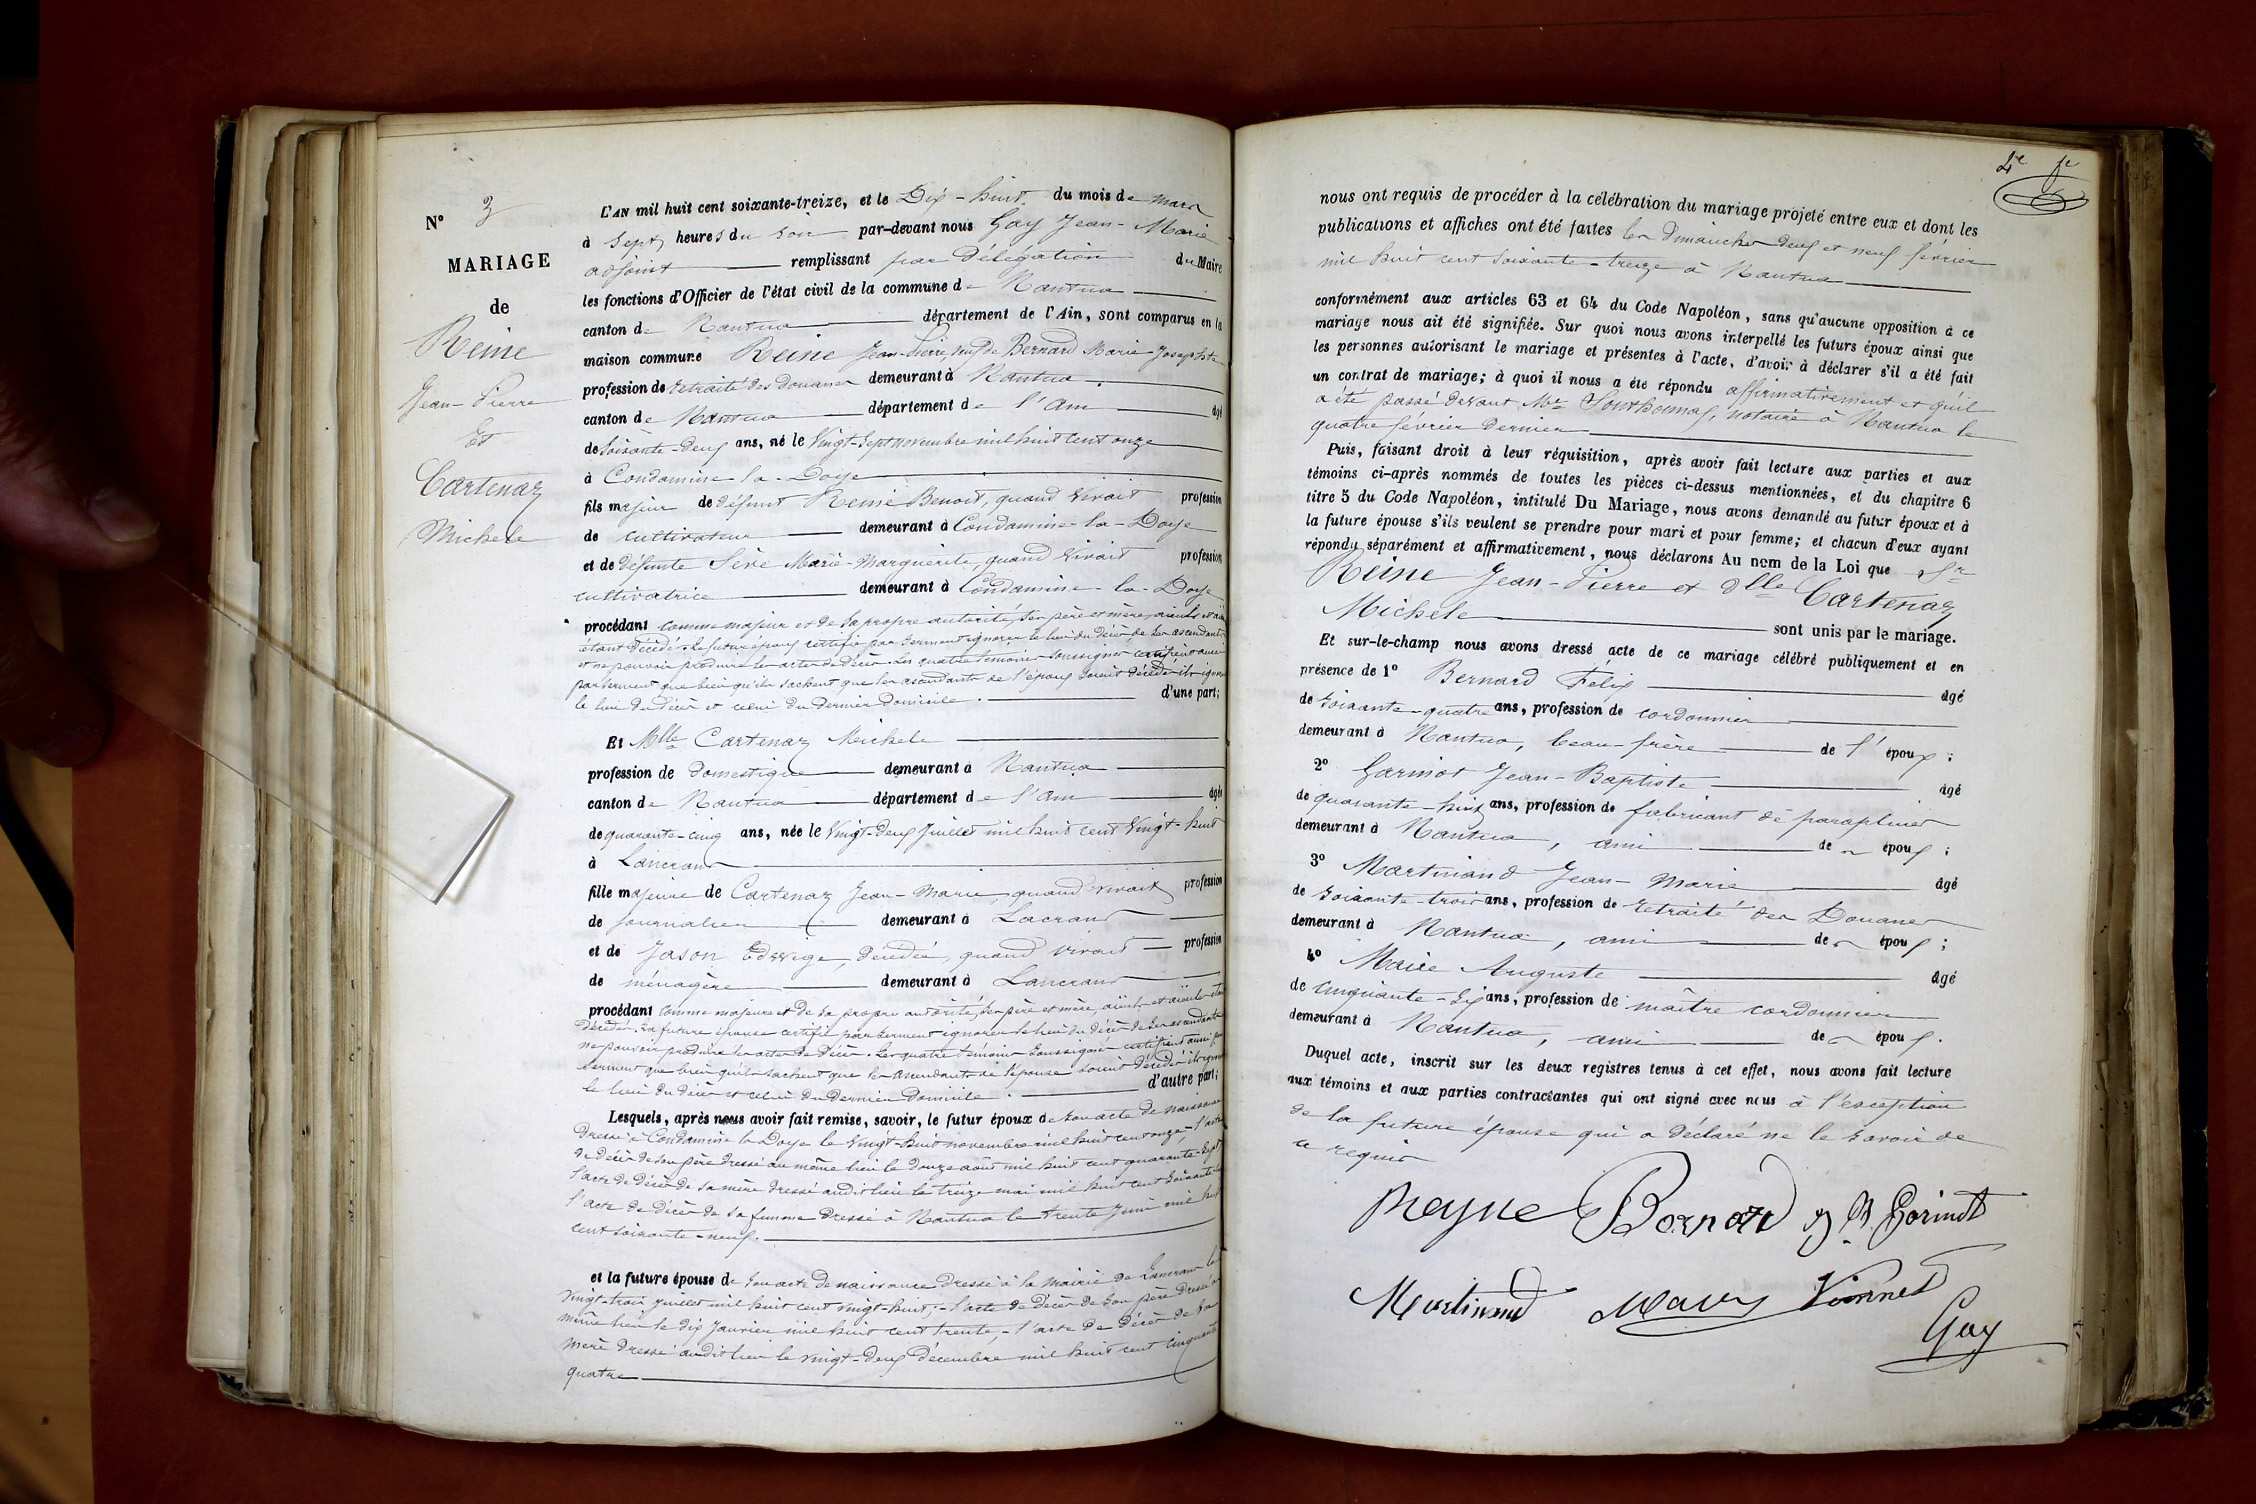 N° 3
MARIAGE
de
Reine
Jean-Pierre
Et
Cartenaz
Michele
L'AN mil huit cent soixante-treize, et le Dix-huit du mois de mars
à Sept heures du soir par-devant nous Gay Jean-Marie
adjoint remplissant par Délégation du Maire
les fonctions d'Officier de l'état civil de la commune de Nantua
canton de Nantua département de l'Ain, sont comparus en la
maison commune Reine Jean-Pierre, veuf de Bernard Marie Josephte
profession de retraité des Douanes demeurant à Nantua
canton de Nantua département de l'Ain âgé
de soixante-deux ans, né le vingt-sept novembre mil huit cent onze
à Condamine la-Doye
fils majeur de défunt Reine Benoit, quand vivait profession
de cultivateur demeurant à Condamine-la-Doye
et de défunte Sève Marie-Marguerite, quand vivait profession
cultivatrice demeurant à Condamine-la-Doye
procédant comme majeur et de sa propre autorité, ses père et mère, aïeuls et
étant décédés. Le futur époux certifie par serment ignorer le lieu du décès de ses ascendants
et ne pouvoir produire les actes de décès. Les quatre témoins soussignés certifient aussi
par serment que bien qu'ils sachent que les ascendants de l'époux soient décédés ils
le lieu du décès et celui du dernier domicile. d'une part;
Et Mlle Cartenaz Michele
profession de domestique demeurant à Nantua
canton de Nantua département de l'Ain âgée
de quarante-cinq ans, née le vingt-deux Juillet mil huit cent vingt-huit
à Lancrans
fille majeure de Cartenaz Jean-Marie, quand vivait profession
de journalier demeurant à Lacrans
et de Jason Edwige, décédée, quand vivait profession
de ménagère demeurant à Lancrans
procédant comme majeure et de sa propre autorité, ses père et mère, aïeuls et aïeules
décédés. La future épouse certifie par serment ignorer le lieu du décès de ses ascendants
ne pouvoir produire les actes de décès. Les quatre témoins soussignés certifient aussi par
serment que bien qu'ils sachent que les ascendants de l'épouse soient décédés ils
le lieu du décès et celui du dernier domicile. d'autre part;
Lesquels, après nous avoir fait remise, savoir, le futur époux de son acte de naissance
dressé à Condamine la Doye le vingt-huit novembre mil huit cent onze, - l'acte
de décès de son père dressé au même lieu le douze août mil huit cent quarante-sept
l'acte de décès de sa mère dressé audit lieu le treize mai mil huit cent soixante
l'acte de décès de sa femme dressé à Nantua le trente Juin mil huit
cent soixante-neuf.
et la future épouse de son acte de naissance dressé à la mairie de Lancrans le
vingt-trois juillet mil huit cent vingt-huit; - l'acte de décès de son père dressé au
même lieu le dix Janvier mil huit cent trente, - l'acte de décès de sa
mère dressé audit lieu le vingt-deux décembre mil huit cent cinquante
quatre
nous ont requis de procéder à la célébration du mariage projeté entre eux et dont les
publications et affiches ont été faites les dimanches deux et neuf février
mil huit cent soixante-treize à Nantua
conformément aux articles 63 et 64 du Code Napoléon, sans qu'aucune opposition à ce
mariage nous ait été signifiée. Sur quoi nous avons interpellé les futurs époux ainsi que
les personnes autorisant le mariage et présentes à l'acte, d'avoir à déclarer s'il a été fait
un contrat de mariage; à quoi il nous a été répondu affirmativement et qu'il
a été passé devant Me notaire à Nantua le
quatre février dernier
Puis, faisant droit à leur réquisition, après avoir fait lecture aux parties et aux
témoins ci-après nommés de toutes les pièces ci-dessus mentionnées, et du chapitre 6
titre 5 du Code Napoléon, intitulé Du Mariage, nous avons demandé au futur époux et à
la future épouse s'ils veulent se prendre pour mari et pour femme; et chacun d'eux ayant
répondu séparément et affirmativement, nous déclarons Au nom de la Loi que Sr
Reine Jean-Pierre et Dlle Cartenaz
Michele sont unis par le mariage.
Et sur-le-champ nous avons dressé acte de ce mariage célébré publiquement et en
présence de 1° Bernard Félix âgé
de soixante-quatre ans, profession de cordonnier
demeurant à Nantua, beau-frère de l'époux;
2° Garinot Jean-Baptiste âgé
de quarante-huit ans, profession de fabricant de parapluies
demeurant à Nantua, ami de époux;
3° Martinand Jean-Marie âgé
de soixante-trois ans, profession de retraité des Douanes
demeurant à Nantua, ami de époux;
4° Auguste âgé
de cinquante-six ans, profession de maître cordonnier
demeurant à Nantua, ami de époux.
Duquel acte, inscrit sur les deux registres tenus à cet effet, nous avons fait lecture
aux témoins et aux parties contractantes qui ont signé avec nous à l'exception
de la future épouse qui a déclaré ne le savoir de
ce requis
Reyne Bernard Garinot
Martinand Vionnet
Gay